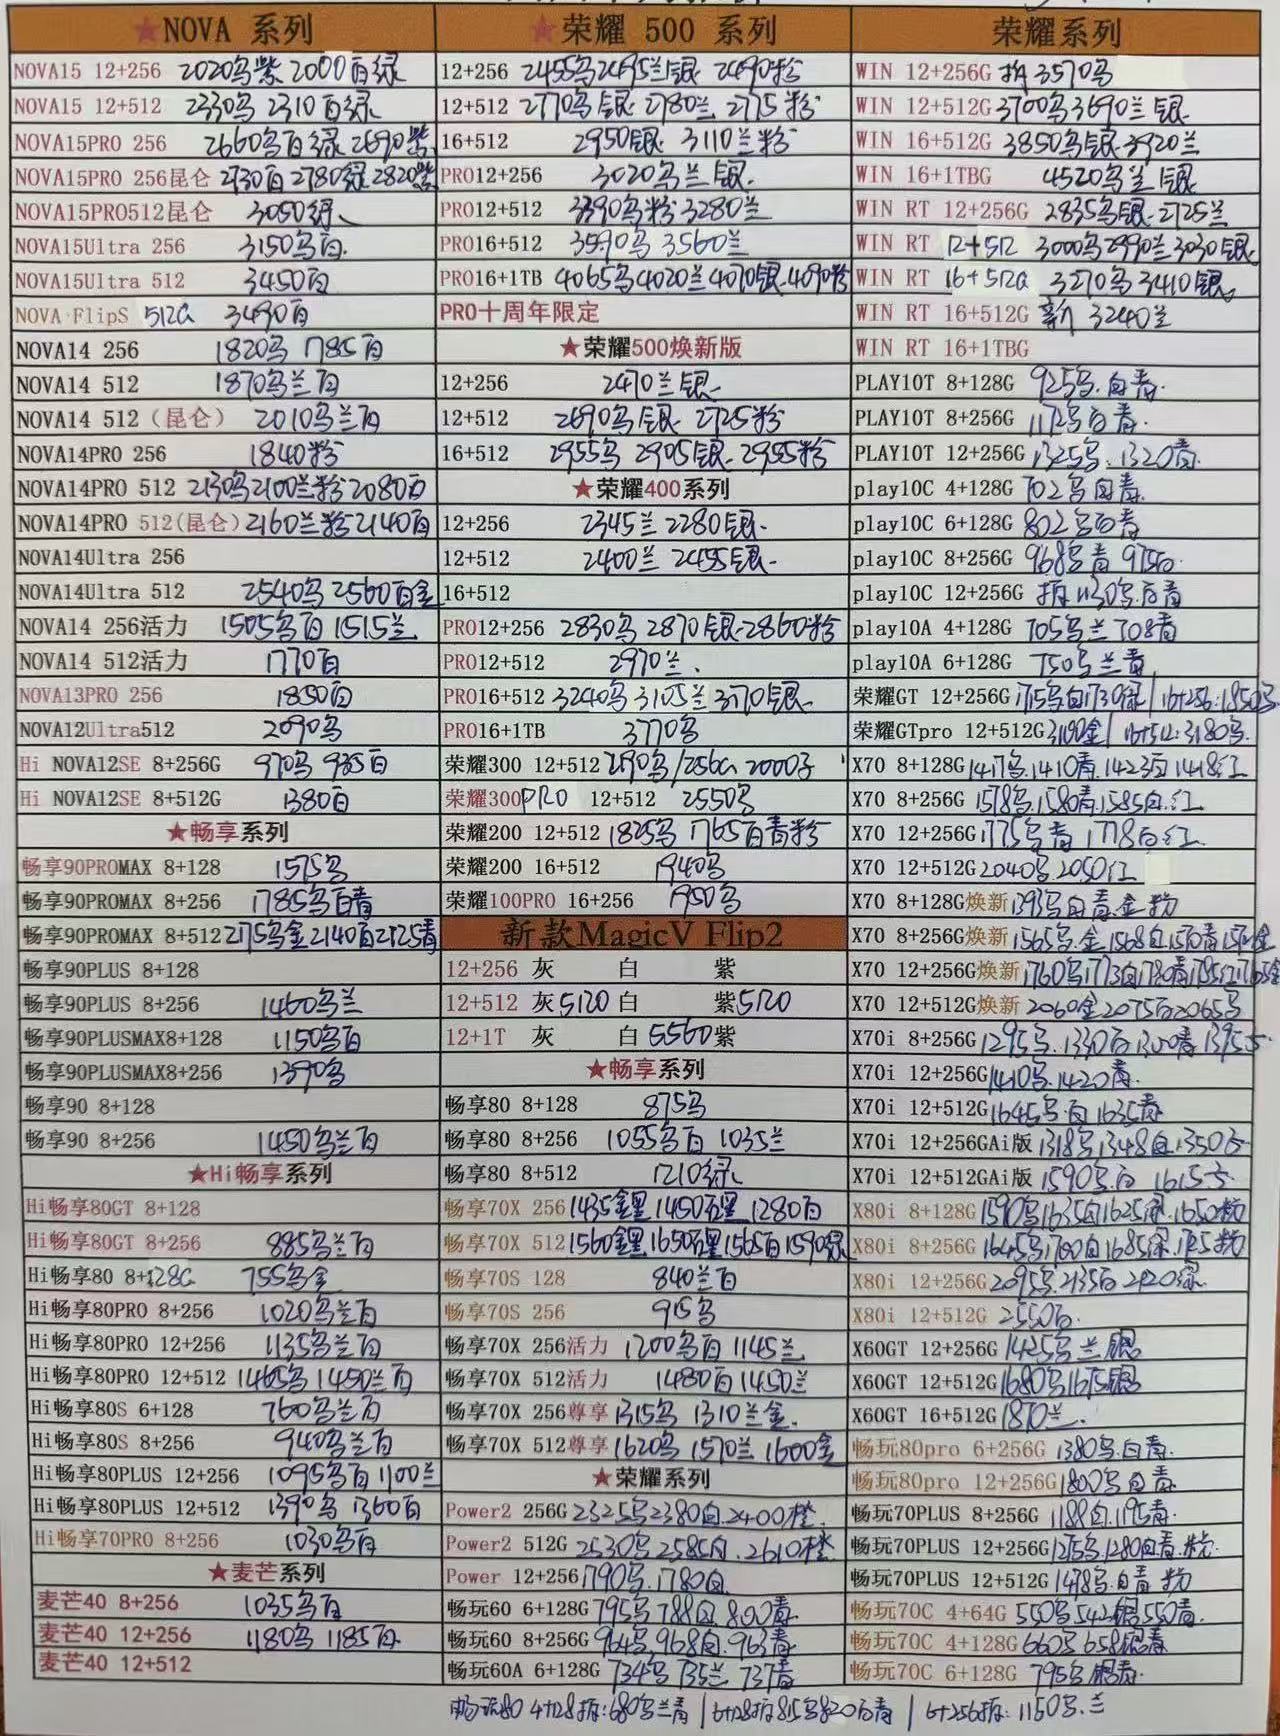 ★NOVA 系列
NOVA15 12+256 2020乌紫 2000百绿
NOVA15 12+512 2330乌 2310百绿
NOVA15PRO 256 2660乌百绿 2690紫
NOVA15PRO 256昆仑 2730百 2780绿 2820紫
NOVA15PRO512昆仑 3050绿
NOVA15Ultra 256 3150乌百
NOVA15Ultra 512 3450百
NOVA FlipS 512G 3490百
NOVA14 256 1820乌 1785百
NOVA14 512 1870乌兰百
NOVA14 512 (昆仑) 2010乌兰百
NOVA14PRO 256 1840粉
NOVA14PRO 512 2130乌2100兰粉2080百
NOVA14PRO 512(昆仑) 2160兰粉2140百
NOVA14Ultra 256
NOVA14Ultra 512 2540乌 2560百金
NOVA14 256活力 1505乌百 1515兰
NOVA14 512活力 1770百
NOVA13PRO 256 1850百
NOVA12Ultra512 2090乌
Hi NOVA12SE 8+256G 970乌 935百
Hi NOVA12SE 8+512G 1380百
★畅享系列
畅享90PROMAX 8+128 1575乌
畅享90PROMAX 8+256 1785乌百青
畅享90PROMAX 8+512 2175乌金2140百2125青
畅享90PLUS 8+128
畅享90PLUS 8+256 1460乌兰
畅享90PLUSMAX8+128 1150乌百
畅享90PLUSMAX8+256 1390乌
畅享90 8+128
畅享90 8+256 1450乌兰百
★Hi畅享系列
Hi畅享80GT 8+128
Hi畅享80GT 8+256 885乌兰百
Hi畅享80 8+128G 755乌金
Hi畅享80PRO 8+256 1020乌兰百
Hi畅享80PRO 12+256 1135乌兰百
Hi畅享80PRO 12+512 1465乌 1450兰百
Hi畅享80S 6+128 760乌兰百
Hi畅享80S 8+256 940乌兰百
Hi畅享80PLUS 12+256 1095乌百 1100兰
Hi畅享80PLUS 12+512 1390乌 1360百
Hi畅享70PRO 8+256 1030乌百
★麦芒系列
麦芒40 8+256 1035乌百
麦芒40 12+256 1180乌 1185百
麦芒40 12+512
★荣耀 500 系列
12+256 2455乌2495兰银 2490粉
12+512 2770乌银 2780兰 2775粉
16+512 2950银 3110兰粉
PRO12+256 3020乌兰银
PRO12+512 3390乌粉 3280兰
PRO16+512 3590乌 3560兰
PRO16+1TB 4065乌4020兰4070银4090粉
PRO十周年限定
★荣耀500焕新版
12+256 2470兰银
12+512 2690乌银 2725粉
16+512 2955乌 2905银 2985粉
★荣耀400系列
12+256 2345兰 2280银
12+512 2400兰 2455银
16+512
PRO12+256 2830乌 2870银 2860粉
PRO12+512 2970兰
PRO16+512 3240乌 3105兰 3170银
PRO16+1TB 3770乌
荣耀300 12+512 2190乌/256G 2000
荣耀300PRO 12+512 2550乌
荣耀200 12+512 1825乌 1765百青粉
荣耀200 16+512 1940乌
荣耀100PRO 16+256 1950乌
新款MagicV Flip2
12+256 灰 白 紫
12+512 灰5120 白 紫5120
12+1T 灰 白5560紫
★畅享系列
畅享80 8+128 875乌
畅享80 8+256 1055乌百 1035兰
畅享80 8+512 1210绿
畅享70X 256 1435金黑 1450石黑 1280百
畅享70X 512 1560金黑1650石黑1565百1590绿
畅享70S 128 840兰百
畅享70S 256 915乌
畅享70X 256活力 1200乌百 1145兰
畅享70X 512活力 1480百1450兰
畅享70X 256尊享 1315乌 1310兰金
畅享70X 512尊享 1620乌 1570兰 1600金
★荣耀系列
Power2 256G 2325乌2380白2400橙
Power2 512G 2530乌 2585白 2610橙
Power 12+256 1790乌.1780白
畅玩60 6+128G 795乌 788白 800青
畅玩60 8+256G 964乌.968白.963青
畅玩60A 6+128G 734乌 735兰 737青
荣耀系列
WIN 12+256G 拆 3570乌
WIN 12+512G 3700乌3690兰银
WIN 16+512G 3850乌银 3920兰
WIN 16+1TBG 4520乌兰银
WIN RT 12+256G 2835乌银 2725兰
WIN RT 12+512 3000乌2990兰3030银
WIN RT 16+512G 3270乌 3410银
WIN RT 16+512G 新 3240兰
WIN RT 16+1TBG
PLAY10T 8+128G 925乌.白青
PLAY10T 8+256G 1172乌白青
PLAY10T 12+256G 1325乌.1320青
play10C 4+128G 702乌白青
play10C 6+128G 802乌百青
play10C 8+256G 968乌青 975百
play10C 12+256G 拆1130乌.百青
play10A 4+128G 705乌兰 708青
play10A 6+128G 750乌兰青
荣耀GT 12+256G 1715乌白1730绿/16+256:1850乌
荣耀GTpro 12+512G 3190金/16+512:3180乌
X70 8+128G 1417乌.1410青.1423百1418红
X70 8+256G 1578乌.1580青.1585白.红
X70 12+256G 1775乌青 1778百红
X70 12+512G 2040乌 2050红
X70 8+128G焕新 1393乌白青.金粉
X70 8+256G焕新 1565乌.金1568白1570青
X70 12+256G焕新 1760乌1773白1780青
X70 12+512G焕新 2060金2075百2065乌
X70i 8+256G 1295乌.1330百1300青
X70i 12+256G 1410乌.1420青
X70i 12+512G 1645乌百1635青
X70i 12+256GAi版 1318乌1348白1350
X70i 12+512GAi版 1590乌白 1615
X80i 8+128G 1590乌1635白1625绿.1650粉
X80i 8+256G 1645乌1700白1685绿
X80i 12+256G 2095乌.2135百2120绿
X80i 12+512G 2550百
X60GT 12+256G 1425乌兰银
X60GT 12+512G 1680乌1675银
X60GT 16+512G 1870兰
畅玩80pro 6+256G 1380乌.白青
畅玩80pro 12+256G 1800乌白青
畅玩70PLUS 8+256G 1188白.1195青
畅玩70PLUS 12+256G 1275乌.1280白青.粉
畅玩70PLUS 12+512G 1478乌.白青 粉
畅玩70C 4+64G 550乌542银550青
畅玩70C 4+128G 660乌658银青
畅玩70C 6+128G 795乌.银青
畅玩80 4+128拆:680乌兰青/6+128拆815乌820百青/6+256拆:1150乌.兰